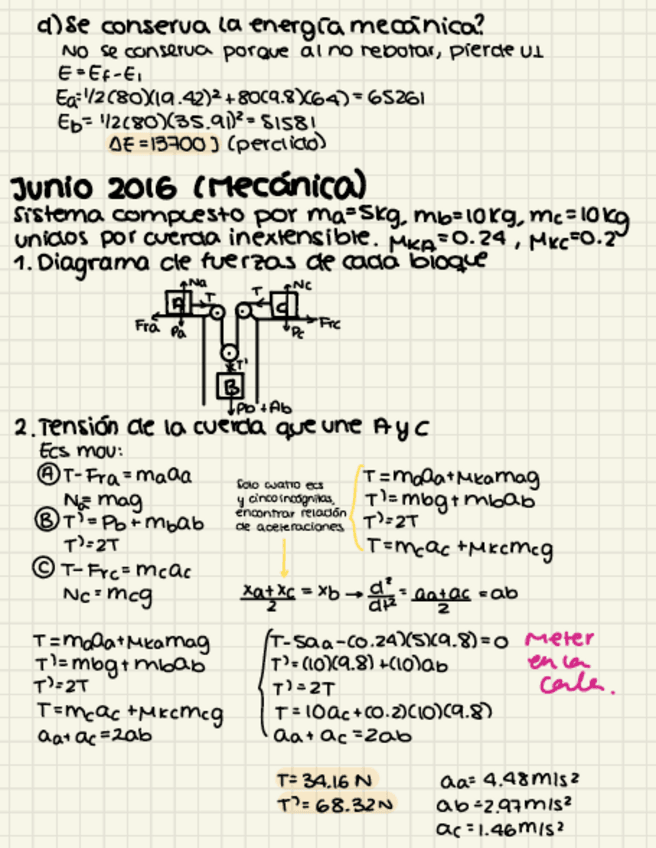 d) Se conserva la energía mecánica?
No se conserva porque al no rebotar, pierde U⊥
E = Ef - Ei
Ea = 1/2(80)(19.42)² + 80(9.8)(64) = 65261
Eb = 1/2(80)(35.91)² = 51581
ΔE = 13700 J (perdido)
Junio 2016 (Mecánica)
Sistema compuesto por ma = 5kg, mb = 10kg, mc = 10kg
unidos por cuerda inextensible. μKA = 0.24, μKC = 0.2
1. Diagrama de fuerzas de cada bloque
Na T T Nc
A C
Fra Pa Pc Frc
T'
B
Pb + Ab
2. Tensión de la cuerda que une A y C
Ecs mov:
Ⓐ T - Fra = maaa
Na = mag
Ⓑ T' = Pb + mbab
T' = 2T
Ⓒ T - Frc = mcac
Nc = mcg
Solo cuatro ecs
y cinco incógnitas,
encontrar relación
de aceleraciones
T = maaa + μkamag
T' = mbg + mbab
T' = 2T
T = mcac + μkcmcg
xa + xc / 2 = xb → d²/dt² = aa + ac / 2 = ab
T = maaa + μkamag
T' = mbg + mbab
T' = 2T
T = mcac + μkcmcg
aa + ac = 2ab
T - 5aa - (0.24)(5)(9.8) = 0
T' = (10)(9.8) + (10)ab
T' = 2T
T = 10ac + (0.2)(10)(9.8)
aa + ac = 2ab
Meter
en la
Calc.
T = 34.16 N
T' = 68.32 N
aa = 4.48 m/s²
ab = 2.97 m/s²
ac = 1.46 m/s²